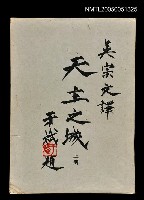 NMTL20050051325
吳宗文譯
天主之城
上冊
于斌題